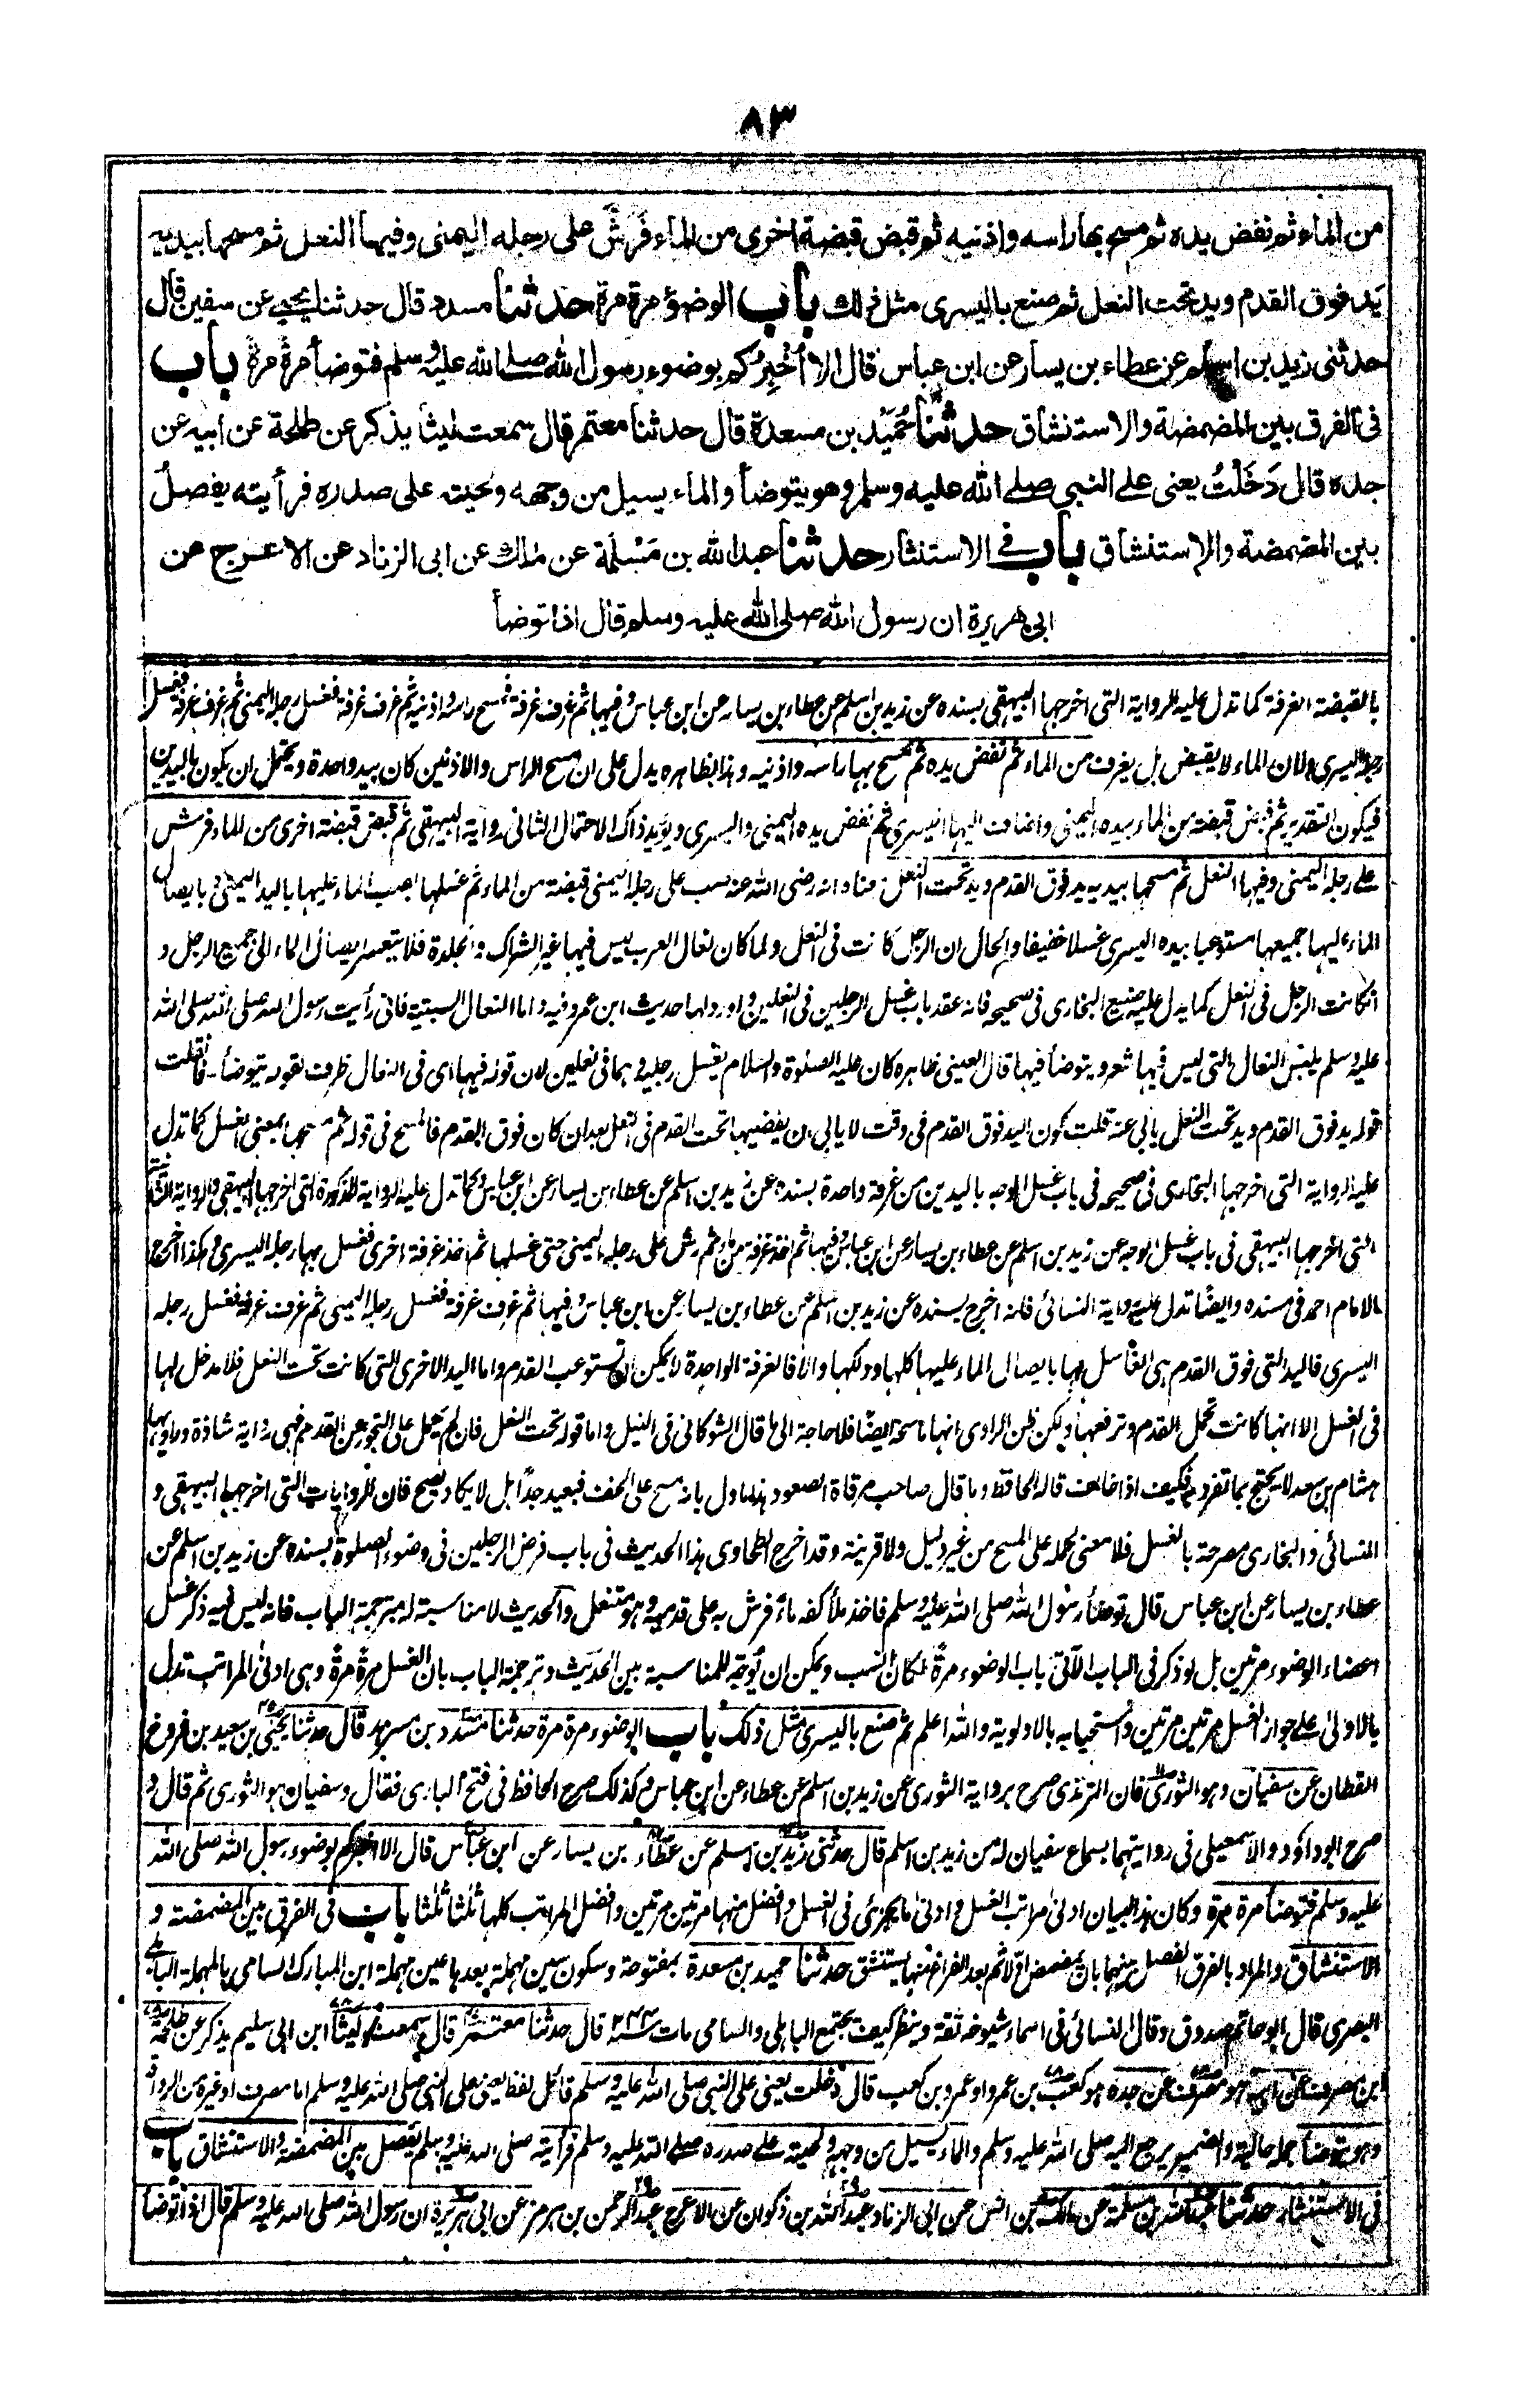 ٨٣
من الماء ثم نفض يده ثم مسح بها راسه واذنيه ثم قبض قبضة اخرى من الماء فرش على رجله اليمنى وفيها النعل ثم مسحها بيديه
يد فوق القدم ويد تحت النعل ثم صنع باليسرى مثل ذلك باب الوضوء مرة مرة حدثنا مسدد قال حدثنا يحيى عن سفين قال
حدثنى زيد بن اسلم عن عطاء بن يسار عن ابن عباس قال الا أُخْبِرُكم بوضوء رسول الله صلى الله عليه وسلم فتوضأ مرة مرة باب
فى الفرق بين المضمضة والاستنشاق حدثنا حُمَيْد بن مسعدة قال حدثنا معتمر قال سمعت ليثا يذكر عن طلحة عن ابيه عن
جده قال دَخَلْتُ يعنى على النبى صلى الله عليه وسلم وهو يتوضأ والماء يسيل من وجهه ولحيته على صدره فرأيته يفصل
بين المضمضة والاستنشاق باب فى الاستنثار حدثنا عبد الله بن مَسْلَمة عن مالك عن ابى الزناد عن الاعرج عن
ابى هريرة ان رسول الله صلى الله عليه وسلم قال اذا توضأ
بالقبضة الغرفة كما تدل عليه الرواية التى اخرجها البيهقى بسنده عن زيد بن اسلم عن عطاء بن يسار عن ابن عباس وفيها ثم غرف غرفة فمسح راسه واذنيه ثم غرف غرفة فغسل رجله اليمنى ثم غرف غرفة فغسل
رجله اليسرى ولان الماء لا يقبض بل يغرف من الماء ثم نفض يده ثم مسح بها راسه واذنيه وهذا بظاهره يدل على ان مسح الراس والاذنين كان بيد واحدة ويحتمل ان يكون باليدين
فيكون التقدير ثم قبض قبضة من الماء بيده اليمنى واضافت اليها اليسرى ثم نفض يده اليمنى واليسرى ويؤيد ذاك الاحتمال الثانى رواية البيهقى ثم قبض قبضة اخرى من الماء فرش
على رجله اليمنى وفيها النعل ثم مسحها بيديه يد فوق القدم ويد تحت النعل معناه انه رضى الله عنه صب على رجله اليمنى قبضة من الماء ثم غسلها بصب الماء عليها باليد اليمنى بايصال
الماء اليها جميعها مستوعبا بيده اليسرى غسلا خفيفا والحال ان الرجل كانت فى النعل ولما كان نعال العرب ليس فيها غير الشراك والجلدة فلا يتعسر ايصال الماء الى جميع الرجل و
ان كانت الرجل فى النعل كما يدل عليه صنيع البخارى فى صحيحه فانه عقد باب غسل الرجلين فى النعلين واورد لها حديث ابن عمر وفيه واما النعال السبتية فانى رأيت رسول الله صلى الله
عليه وسلم يلبس النعال التى ليس فيها شعر ويتوضأ فيها قال العينى ظاهره كان عليه الصلوة والسلام يغسل رجليه وهما فى نعلين لان قوله فيها اى فى النعال ظرف لقوله يتوضأ - فان قلت
قوله يد فوق القدم ويد تحت النعل يابى عنه قلت كون اليد فوق القدم فى وقت لا يابى ان يفضيها تحت القدم فى النعل بعد ان كان فوق القدم فالمسح فى قوله ثم مسحها بمعنى الغسل كما تدل
عليه الرواية التى اخرجها البخارى فى صحيحه فى باب غسل الوجه باليدين من غرفة واحدة بسنده عن زيد بن اسلم عن عطاء بن يسار عن ابن عباس وكما تدل عليه الرواية المذكورة التى اخرجها البيهقى والرواية
التى اخرجها البيهقى فى باب غسل الوجه عن زيد بن اسلم عن عطاء بن يسار عن ابن عباس وفيها ثم اخذ غرفة من ماء ثم رش على رجله اليمنى حتى غسلها ثم اخذ غرفة اخرى فغسل بها رجله اليسرى وهكذا اخرج
الامام احمد فى مسنده وايضًا تدل عليه رواية النسائى فانه اخرج بسنده عن زيد بن اسلم عن عطاء بن يسار عن ابن عباس وفيها ثم غرف غرفة فغسل رجله اليمنى ثم غرف غرفة فغسل رجله
اليسرى فاليد التى فوق القدم هى الغاسل بها بايصال الماء عليها كلها ودلكها والا فالغرفة الواحدة لا يمكن ان تستوعب القدم واما اليد الاخرى التى كانت تحت النعل فلا مدخل لها
فى الغسل الا انها كانت تحمل القدم وترفعها ولكن ظن الراوى انها ماسحة ايضًا فلا حاجة الى ما قال الشوكانى فى النيل واما قوله تحت النعل فان لم يحمل على التجوز عن القدم فهى رواية شاذة وراويها
هشام بن سعد لا يحتج بما تفرد به فكيف اذا خالف قاله الحافظ وما قال صاحب مرقاة الصعود هذا ماول بانه مسح على الخف فبعيد جدًا بل لا يكاد يصح فان الروايات التى اخرجها البيهقى و
النسائى والبخارى مصرحة بالغسل فلا معنى لحمله على المسح من غير دليل ولا قرينة وقد اخرج الطحاوى هذا الحديث فى باب فرض الرجلين فى وضوء الصلوة بسنده عن زيد بن اسلم عن
عطاء بن يسار عن ابن عباس قال توضأ رسول الله صلى الله عليه وسلم فاخذ ملأ كفه ماء فرش به على قدميه وهو متنعل والحديث لا مناسبة له بترجمة الباب فانه ليس فيه ذكر غسل
اعضاء الوضوء مرتين بل لو ذكر فى الباب الآتى باب الوضوء مرة لكان انسب ويمكن ان يوجه للمناسبة بين الحديث وترجمة الباب بان الغسل مرة مرة وهى ادنى المراتب تدل
بالاولى على جواز الغسل مرتين مرتين واستحبابه بالاولوية والله اعلم ثم صنع باليسرى مثل ذلك باب الوضوء مرة مرة حدثنا مسدد بن مسرهد قال حدثنا يحيى بن سعيد بن فروخ
القطان عن سفيان وهو الثورى فان الترمذى صرح برواية الثورى عن زيد بن اسلم عن عطاء عن ابن عباس وكذلك صرح الحافظ فى فتح البارى فقال وسفيان هو الثورى ثم قال و
صرح ابوداؤد والاسمعيلى فى روايتهما بسماع سفيان له من زيد بن اسلم قال حدثنى زيد بن اسلم عن عطاء بن يسار عن ابن عباس قال الا اخبركم بوضوء رسول الله صلى الله
عليه وسلم فتوضأ مرة مرة وكان هذا البيان ادنى مراتب الغسل وادنى ما يجزئ فى الغسل وافضل منها مرتين مرتين وافضل المراتب كلها ثلثا ثلثا باب فى الفرق بين المضمضة و
الاستنشاق والمراد بالفرق الفصل بينهما بان يمضمض اولا ثم بعد الفراغ منها يستنشق حدثنا حميد بن مسعدة بمفتوحة وسكون سين مهملة بعدها عين مهملة ابن المبارك السامى بالمهملة الباهلى
البصرى قال ابو حاتم صدوق وقال النسائى فى اسماء شيوخه ثقة وينظر كيف يجتمع الباهلى والسامى مات سنة ٢٤٤ قال حدثنا معتمر قال سمعت ليثا ابن ابى سليم يذكر عن طلحة
ابن مصرف عن ابيه هو مصرف عن جده هو كعب بن عمرو او عمرو بن كعب قال دخلت يعنى على النبى صلى الله عليه وسلم قائل لفظ يعنى على النبى صلى الله عليه وسلم اما مصرف او غيره من الرواة
وهو يتوضأ جملة حالية والضمير يرجع اليه صلى الله عليه وسلم والماء يسيل من وجهه ولحيته على صدره صلى الله عليه وسلم فرأيته صلى الله عليه وسلم يفصل بين المضمضة والاستنشاق باب
فى الاستنثار حدثنا عبد الله بن مسلمة عن مالك بن انس عن ابى الزناد عبد الله بن ذكوان عن الاعرج عبد الرحمن بن هرمز عن ابى هريرة ان رسول الله صلى الله عليه وسلم قال اذا توضأ